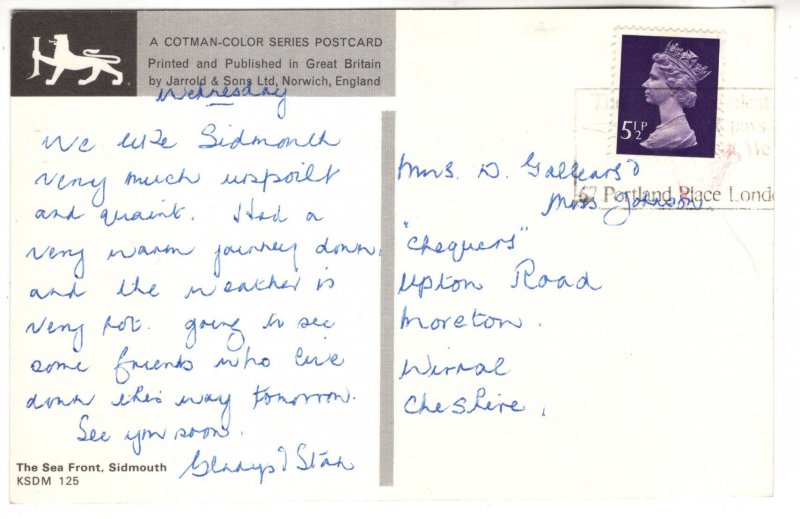 A COTMAN-COLOR SERIES POSTCARD
Printed and Published in Great Britain
by Jarrold & Sons Ltd, Norwich, England
Wednesday
We like Sidmouth
very much unspoilt
and quaint. Had a
very warm journey down
and the weather is
very hot. going to see
some friends who live
down this way tomorrow.
See you soon.
Gladys & Stan
The Sea Front, Sidmouth
KSDM 125
5½P
67 Portland Place Lond
Mrs. D. &
Miss Johnson.
"Chequers"
Upton Road
Moreton.
Wirral
Cheshire.